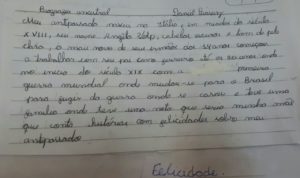 Biografia ancestral Daniel
Meu antepassado nasceu na Itália, em meados do século
XVIII, seu nome Angelo, cabelos escuros e tom de pele
claro, o mais novo de seus irmãos aos anos começou
a trabalhar com seu pai como ferreiro até os 20 anos onde
no início do século XIX com a primeira
guerra mundial onde mudou-se para o Brasil
para fugir da guerra onde se casou e teve uma
família onde teve uma neta que seria minha mãe
que conta histórias com felicidades sobre meu
antepassado
Felicidade.